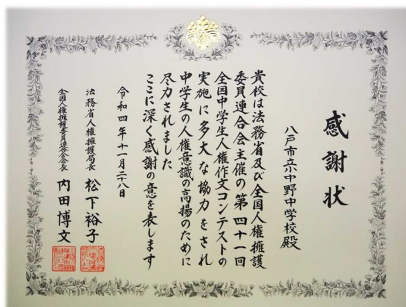 感謝状
八戸市立小中野中学校殿
貴校は法務省及び全国人権擁護
委員連合会主催の第四十一回
全国中学生人権作文コンテストの
実施に多大な協力をされ
中学生の人権意識の高揚のために
尽力されました
ここに深く感謝の意を表します
令和四年十一月二十八日
法務省人権擁護局長 松下裕子
全国人権擁護委員連合会長 内田博文